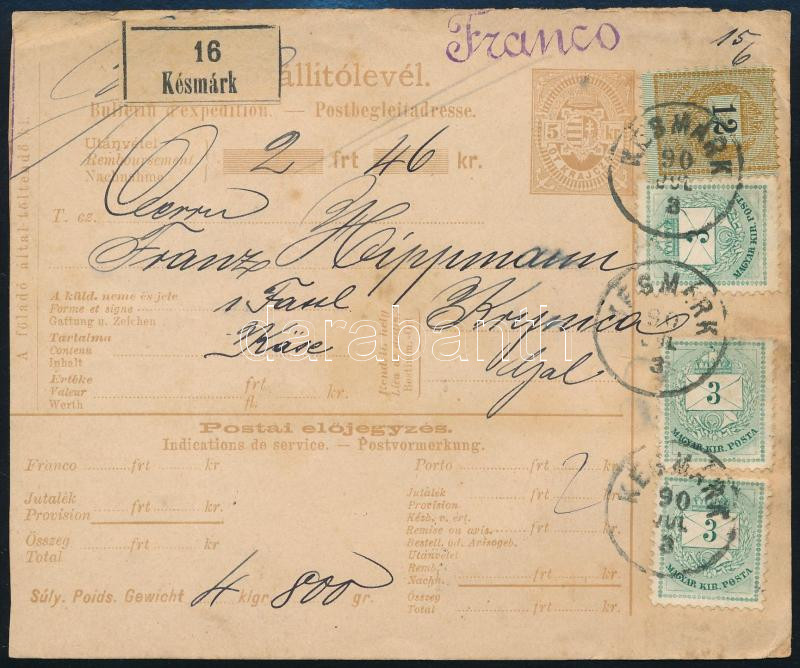 Franco
15/6
16
Késmárk
állitólevél.
Bulletin d'expédition. — Postbegleitadresse.
Utánvétel
Remboursement
Nachnahme
2 frt 46 kr.
5 kr.
12
KESMARK
90
JUL
3
3
MAGYAR KIR. POSTA
T. cz.
Herrn
Franz Hippmann
1 Fassl
Käse
A feladó által töltendő ki.
A küld. neme és jele
Forme et signe
Gattung u. Zeichen
Tartalma
Contenu
Inhalt
Értéke
Valeur frt. kr.
Werth fl.
darabanth
KESMARK
90
JUL
3
3
MAGYAR KIR. POSTA
Postai előjegyzés.
Indications de service. — Postvormerkung.
Franco frt kr
Jutalék
Provision frt kr
Összeg
Total frt kr
Porto frt kr.
Jutalék
Provision
Kézb. v. ért.
Remise ou avis. frt kr.
Bestell. od. Avisogeb.
Utánvétel
Remb.
Nachn. frt kr.
Összeg
Total frt kr.
Súly. Poids. Gewicht 4 klgr 800 gr.
KESMARK
90
JUL
3
3
MAGYAR KIR. POSTA